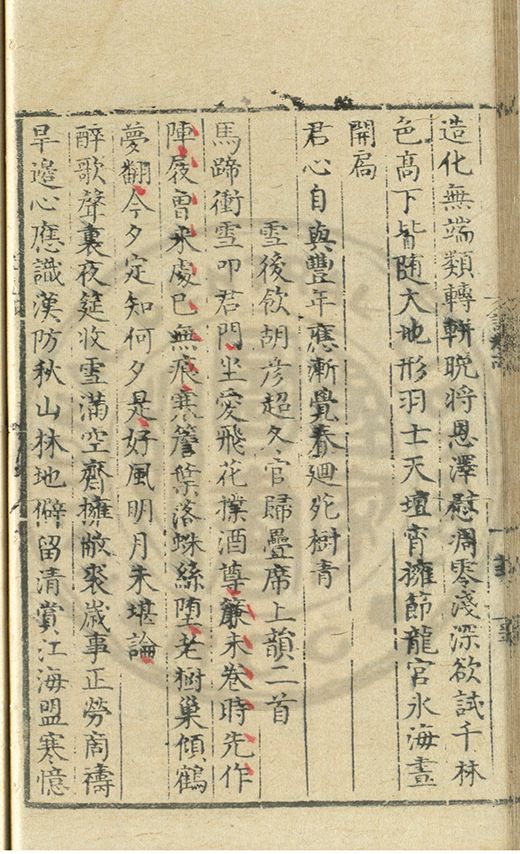 造化無端類轉軿晩將恩澤慰凋零淺深欲試千林
色高下皆随大地形羽士天壇宵擁節龍宫氷海晝
開扃
君心自與豐年應漸覺春廻死樹青
雪後飲胡彦超冬官歸疊席上韻二首
馬蹄衝雪叩君門坐愛飛花撲酒尊簾未卷時先作
陣屐曾来處已無痕寒簷葉落蛛絲墮老樹巢傾鶴
夢翻今夕定知何夕是好風明月未堪論
醉歌聲裏夜筵收雪滿空齋擁敝裘歲事正勞商禱
旱邉心應識漢防秋山林地僻留清賞江海盟寒憶